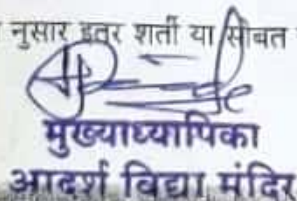 नुसार इतर शर्ती या सोबत
मुख्याध्यापिका
आदर्श विद्या मंदिर